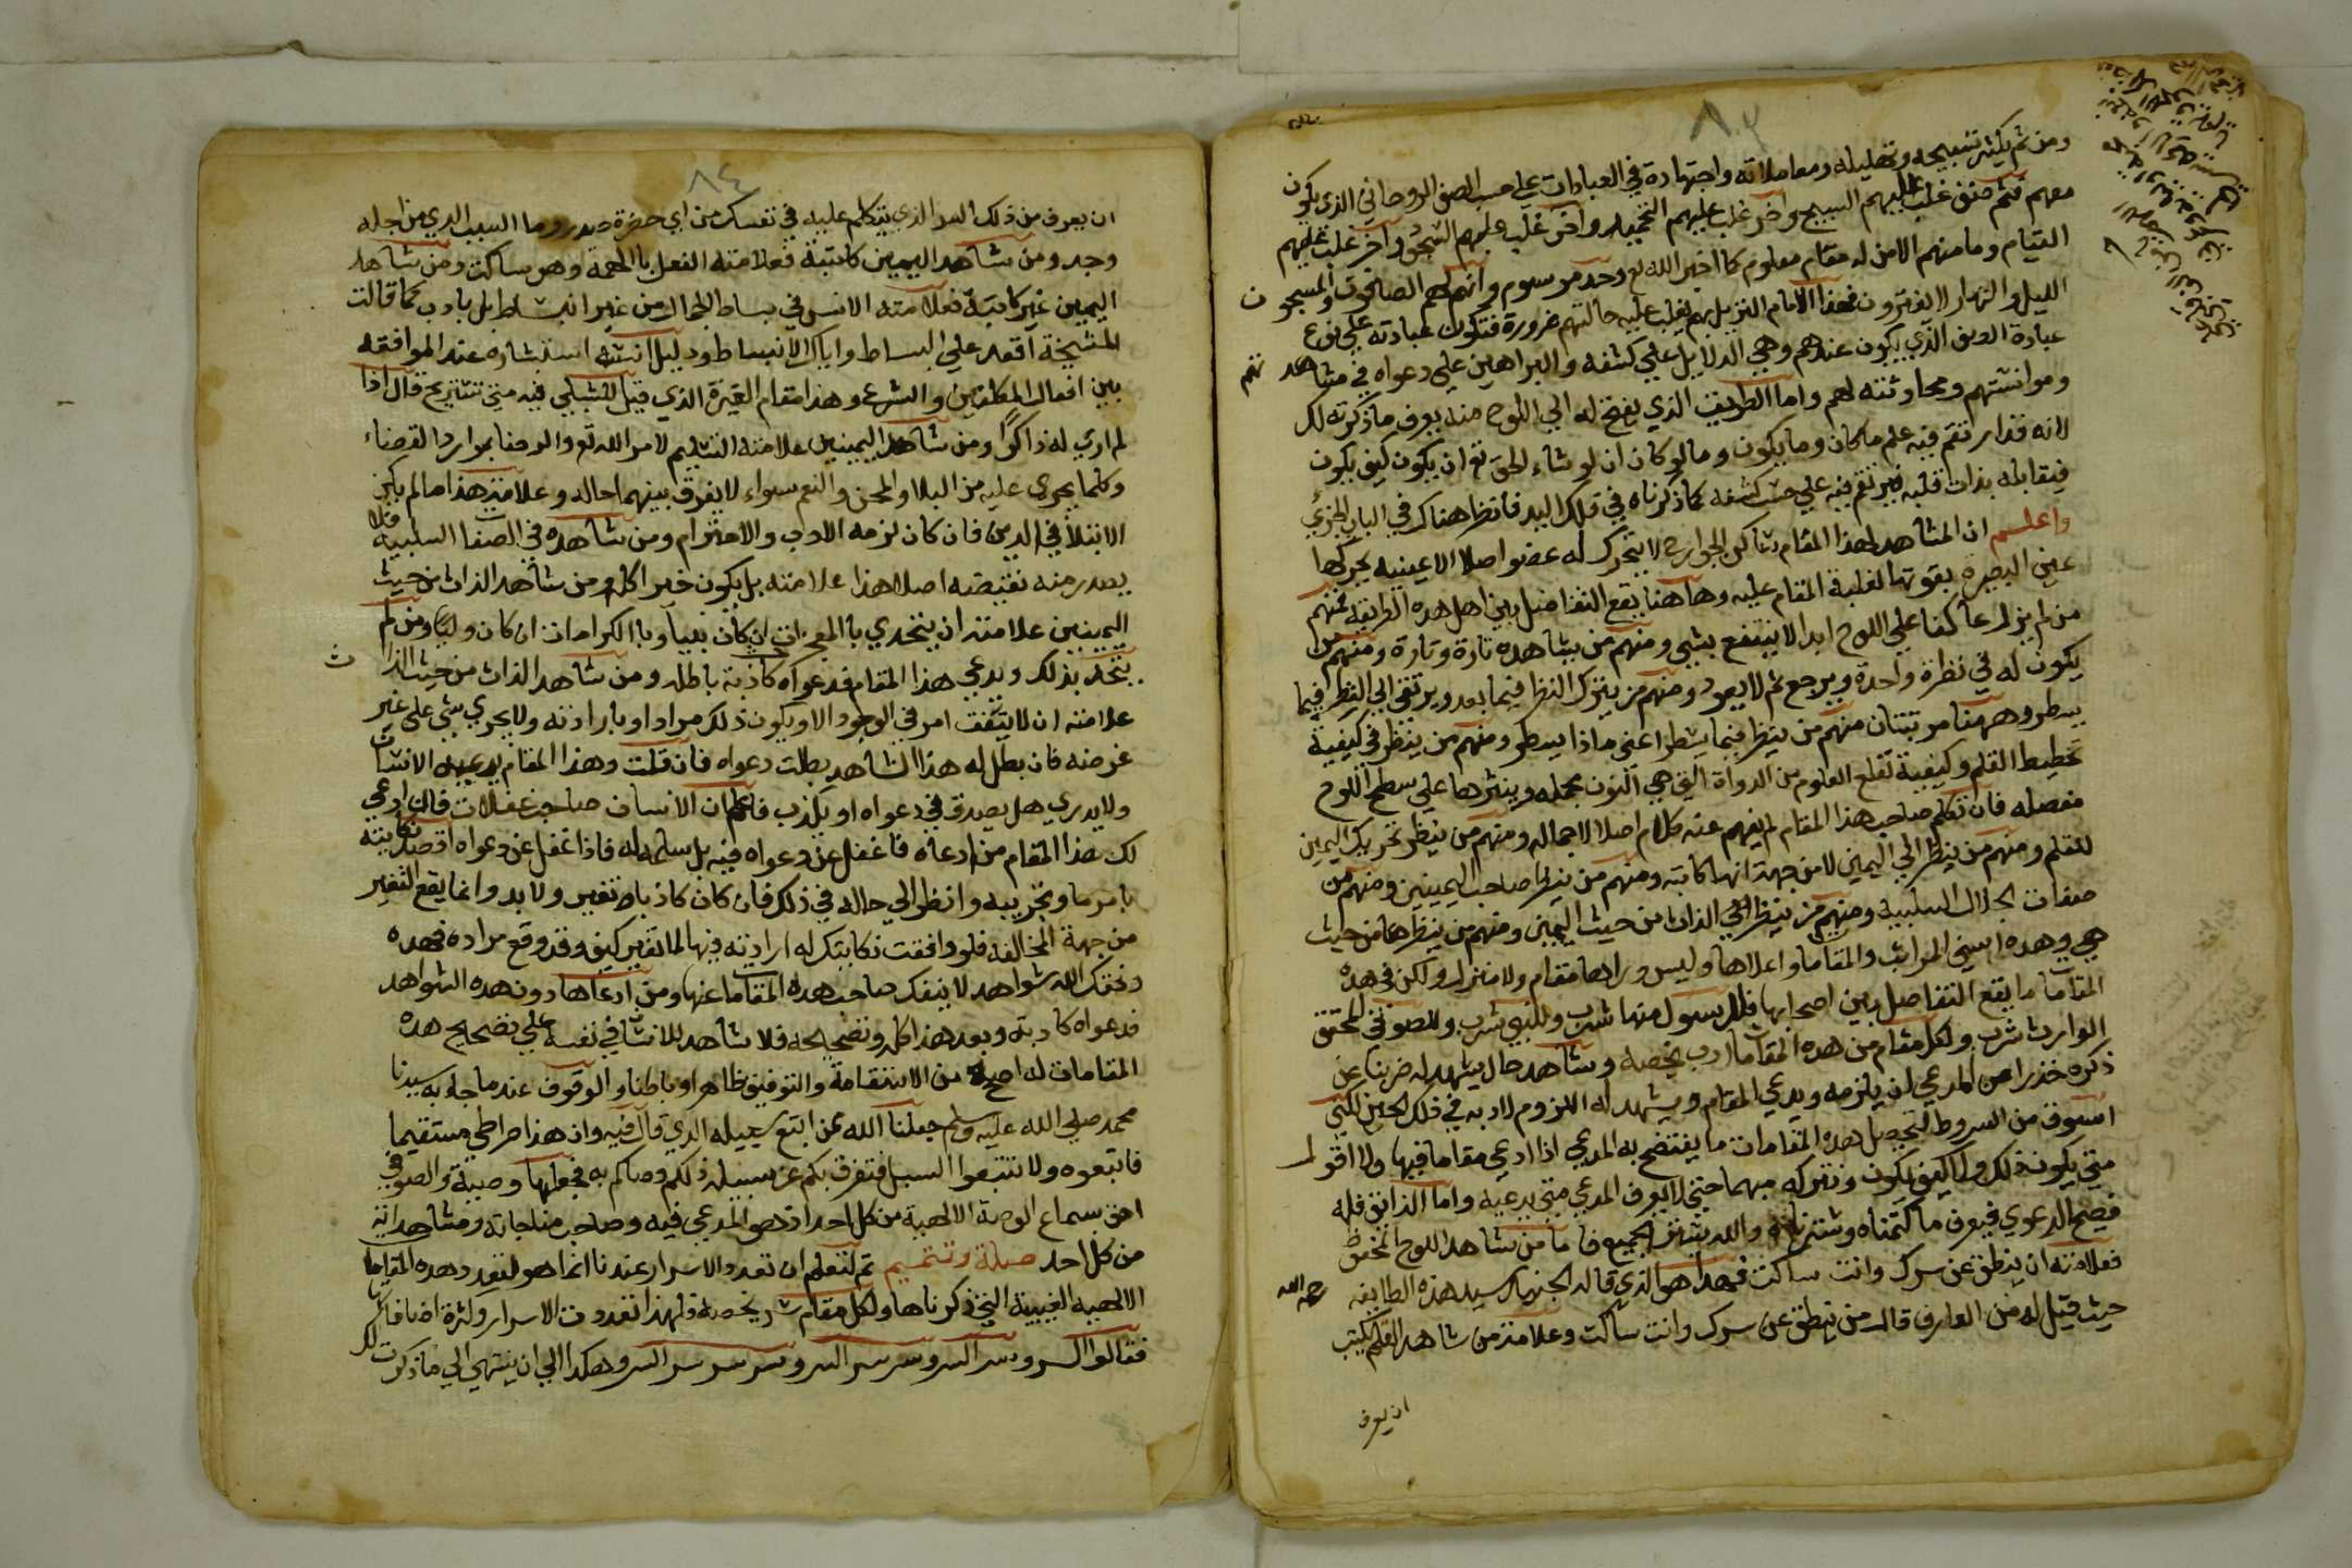 ٨٣
ومن ثم يكثر تسبيحه وتهليله ومعاملاته واجتهاده في العبادات علي حسب الصنف الروحاني الذي يكون
معهم فثم صنف غلب عليهم التسبيح واخر غلب عليهم التحميد واخر غلب عليهم السجود واخر غلب عليهم
القيام وما منهم الا من له مقام معلوم كما اخبر الله تع وحد مرسوم وانهم لهم الصافون والمسبحون
الليل والنهار لا يفترون فهذا الامام النزيل بهم يغلب عليه حالتهم ضرورة فتكون عبادته علي نوع
عبادة الصنف الذي يكون عندهم وهي الدلايل علي كشفه والبراهين علي دعواه في مشاهدتهم
وموانستهم ومحادثته لهم واما الطريق الذي يفتح له الي اللوح منه يعرف ما ذكرته لك
لانه قد ارتقم فيه علم ما كان وما يكون وما لو كان ان لو شاء الحق تع ان يكون كيف يكون
فيقابله بذات قلبه فيرتقم فيه علي حسب كشفه كما ذكرناه في فلك اليد فانظر هناك في الباب الجزئي
واعلم ان المشاهد لهذا المقام ساكن الجوارح لا يتحرك له عضو اصلا الا عينيه يحركها
عين البصيرة بقوتها لغلبة المقام عليه وها هنا يقع التفاضل بين اهل هذه الطريقة فمنهم
من لم يزل عاكفا علي اللوح ابدا لا ينتفع بشي ومنهم من يشاهده تارة وتارة ومنهم من
يكون له في نظرة واحدة ويرجع ثم لا يعود ومنهم من يترك النظر فيما بعد ويرتقي الي النظر فيما
يسطر وههنا مرتبتان منهم من ينظر فيما يسطر اعني ماذا يسطر ومنهم من ينظر في كيفية
تخطيط القلم وكيفية تقلع العلوم من الدواة التي هي النون مجملة وينثرها علي سطح اللوح
مفصله فان تكلم صاحب هذا المقام لم يفهم عنه كلام اصلا لاجماله ومنهم من ينظر تحريك اليمين
للقلم ومنهم من ينظر الي اليمين لا من جهة انها كاتبه ومنهم من ينظر صاحب اليمينين ومنهم من
صفات الجلال السلبية ومنهم من ينظر الي الذات من حيث اليمين ومنهم من ينظرها من حيث
هي وهذه اسني المراتب والمقاما واعلاها وليس وراها مقام ولا منزل ولكن في هذه
المقامات ما يقع التفاضل بين اصحابها فللرسول منها شرب وللنبي شرب وللصوفي المحقق
الوارث شرب ولكل مقام من هذه المقامات ادب يخصه وشاهد حال يشهد له ضربنا عن
ذكره حذرا من المدعي ان يلزمه ويدعي المقام ويشهد له اللزوم لادبه في ذلك لحين لكني
اسوق من الشروط لتحصيل هذه المقامات ما يفتضح به المدعي اذا ادعي مقاما فيها ولا اقول
متي يكون ذلك ولا كيف يكون ونتركه مبهما حتي لا يعرف المدعي متي يدعيه واما الذائق فله
فيصح الدعوي فيعرف ما كتمناه وسترناه والله يشفق الجميع فاما من شاهد اللوح المحفوظ
فعلامته ان ينطق عن سرك وانت ساكت فهذا هو الذي قاله الجنيد سيد هذه الطايفه رحمه الله
حيث قيل له من العارف قال من ينطق عن سرك وانت ساكت وعلامة من شاهد القلم يكتب
ان يعرف
٨٤
ان يعرف من ذلك السر الذي يتكلم عليه في نفسك من اي حضرة صدر وما السبب الذي من اجله
وجد ومن شاهد اليمين كاتبة فعلامته الفعل بالهمة وهو ساكت ومن شاهد
اليمين غير كاتبة فعلامته الانس في بساط الجمال من غير انبساط بل بادب كما قالت
المشيخة اقعد علي البساط واياك والانبساط ودليل انسه استبشاره عند الموافقه
بين افعال المكلفين والشرع وهذا مقام الغيرة الذي قيل للشبلي فيه متي تستريح قال اذا
لم اري له ذاكرا ومن شاهد اليمينين علامته التسليم لامر الله تع والرضا بموارد القضاء
وكلما يجري عليه من البلا والمحن والنعم سواء لا يفرق بينهما حاله وعلامة هذا ما لم يكن
الابتلا في الدين فان كان لزمه الادب والاحترام ومن شاهده في الصفات السلبية فلا
يصدر منه نقيضه اصلا هذا علامته بل يكون خيرا كله ومن شاهد الذات من حيث
اليمينين علامته ان يتحدي بالمعجزات ان كان نبيا وبالكرامات ان كان وليا ومن لم
يتحد بذلك ويدعي هذا المقام فدعواه كاذبة باطلة ومن شاهد الذات من حيث الذات
علامته ان لا يتفق امر في الوجود الا ويكون ذلك مرادا وبارادته ولا يجري شي علي غير
غرضه فان بطل له هذا الشاهد بطلت دعواه فان قلت وهذا المقام يدعيه الانسان
ولا يدري هل يصدق في دعواه او يكذب فاعلم ان الانسان صاحب غفلات فان ادعي
لك هذا المقام من ادعاه فاغفل عن دعواه فيه بل سلمه له فاذا غفل عن دعواه اقصد نكايته
بامر ما وتجريبه وانظر الي حاله في ذلك فان كان كاذبا تغير ولا بد وانما يقع التغير
من جهة المخالفه فلو وافقت نكايتك له ارادته فيها لما تغير كيف وقد وقع مراده فهذه
وفقك الله شواهد لا ينفك صاحب هذه المقامات عنها ومن ادعاها دون هذه الشواهد
فدعواه كاذبة وبعد هذا كله وتصحيحه فلا شاهد للانسان في نفسه علي تصحيح هذه
المقامات له اصح من الاستقامة والتوفيق ظاهرا وباطنا والوقوف عند ما جاء به سيدنا
محمد صلي الله عليه وسلم جعلنا الله ممن اتبع سبيله الذي قال فيه وان هذا صراطي مستقيما
فاتبعوه ولا تتبعوا السبل فتفرق بكم عن سبيله ذلكم وصاكم به فجعلها وصية والصوفي
احق بسماع الوصية الالهية من كل احد اذ هو المدعي فيه وصاحب مناجاته ومشاهداته
من كل احد صلة وتتميم ثم لتعلم ان تعدد الاسرار عندنا انما هو لتعدد هذه المقامات
الالهيه الغيبية التي ذكرناها ولكل مقام سر يخصه فلهذا تعددت الاسرار وكثرة اضافاتها
فقالوا السر وسر السر وسر سر السر وسر سر سر السر وهكذا الي ان ينتهي الي ما ذكرت لك